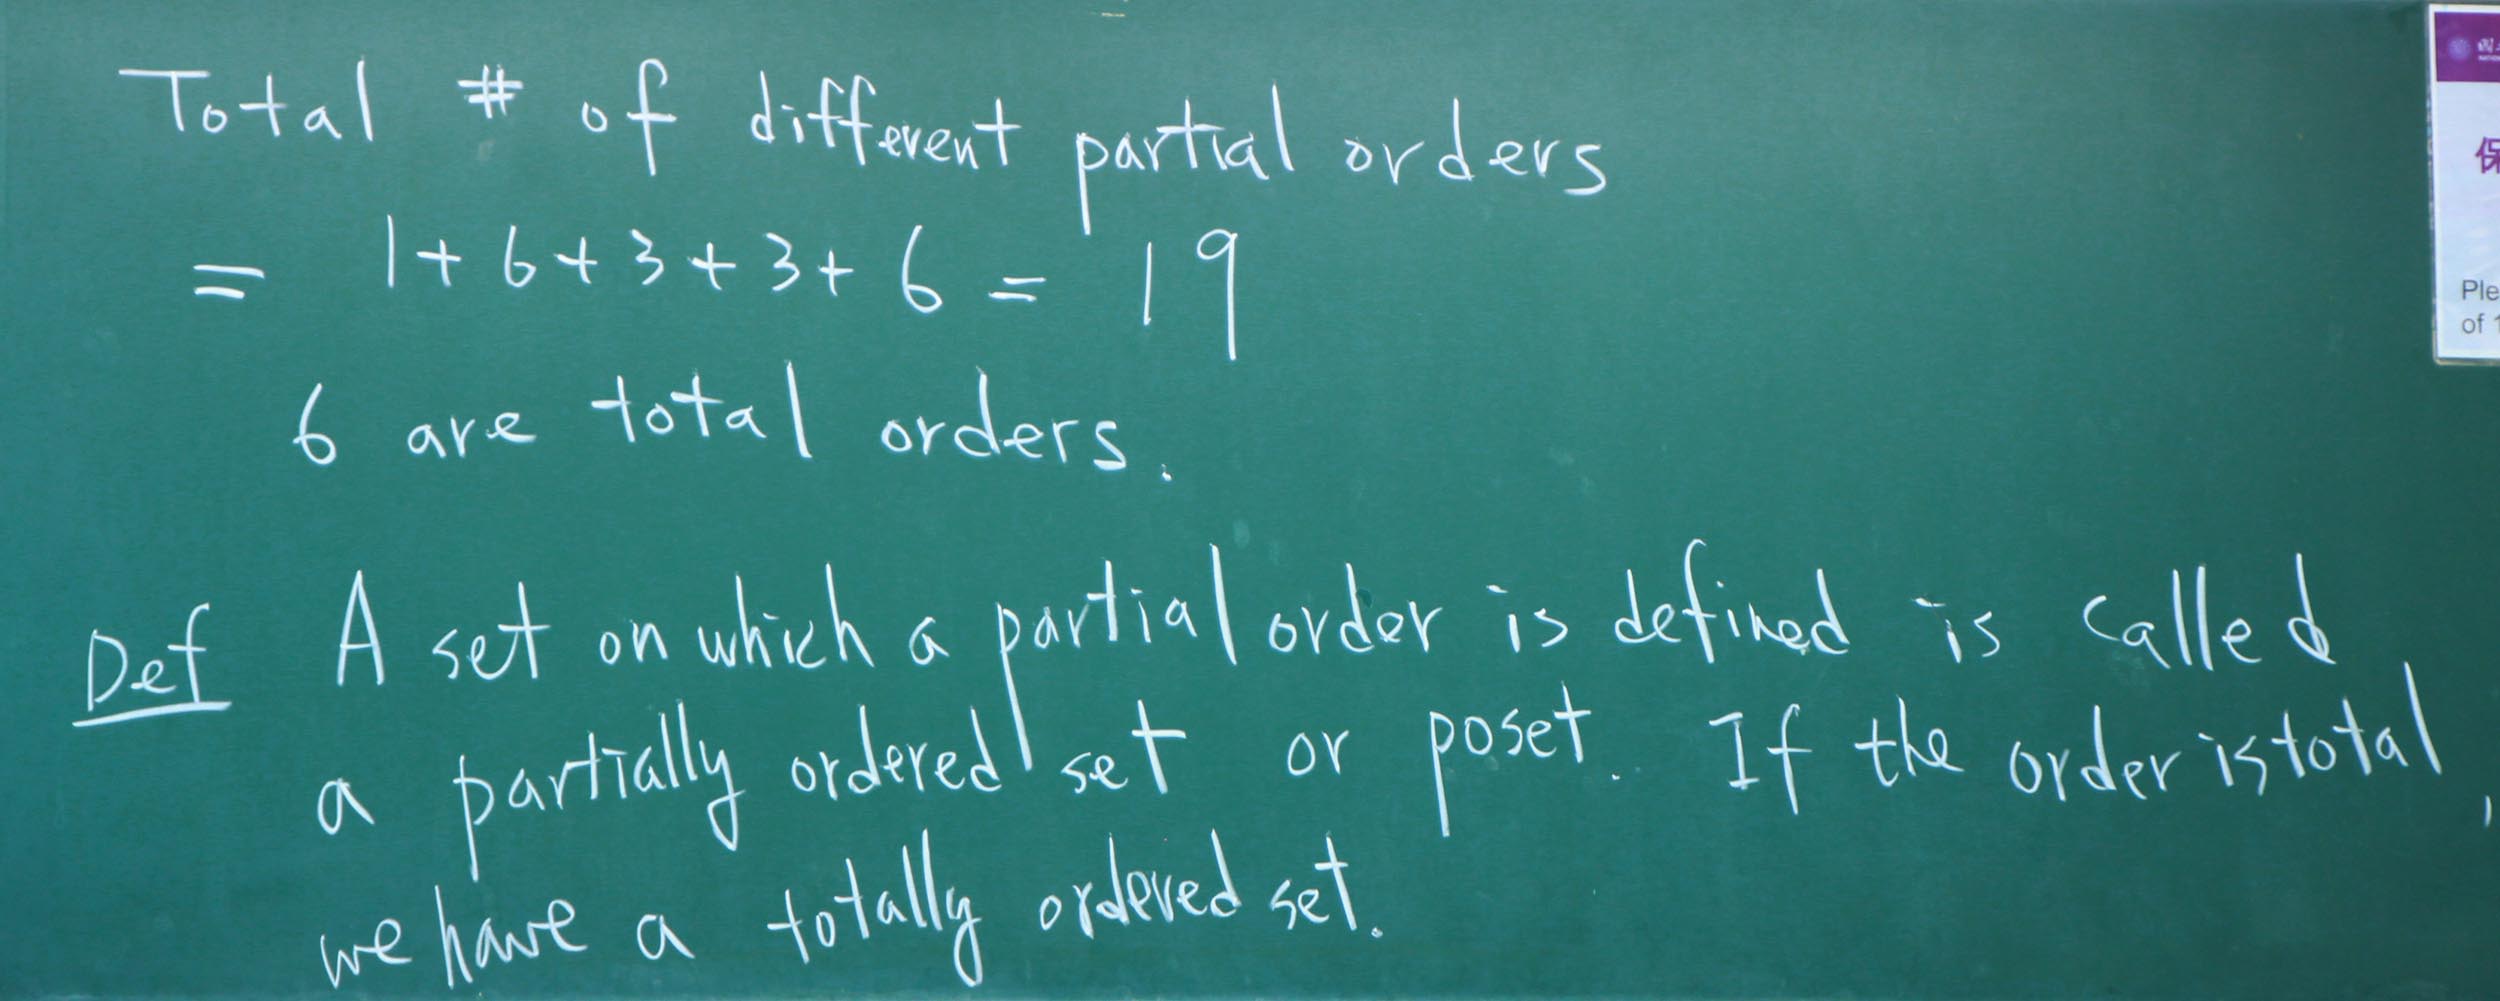 Total # of different partial orders
= 1 + 6 + 3 + 3 + 6 = 19
6 are total orders.
Def A set on which a partial order is defined is called
a partially ordered set or poset. If the order is total,
we have a totally ordered set.
保
Ple
of 1